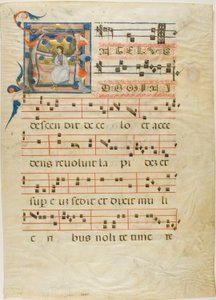 ANGELUS
DOMINI
descen dit de ce lo et acce
dens revoluit la pi dez et
sup eu sedit et dixit mu li
e ri bus noli te time re